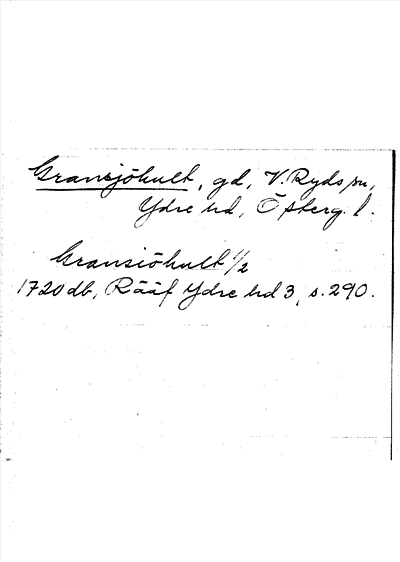 Gransjöhult, gd, V. Ryds sn,
Ydre hd, Östergl.
Gransiöhult 1/2
1720 db, Rääf Ydre hd 3, s. 290.